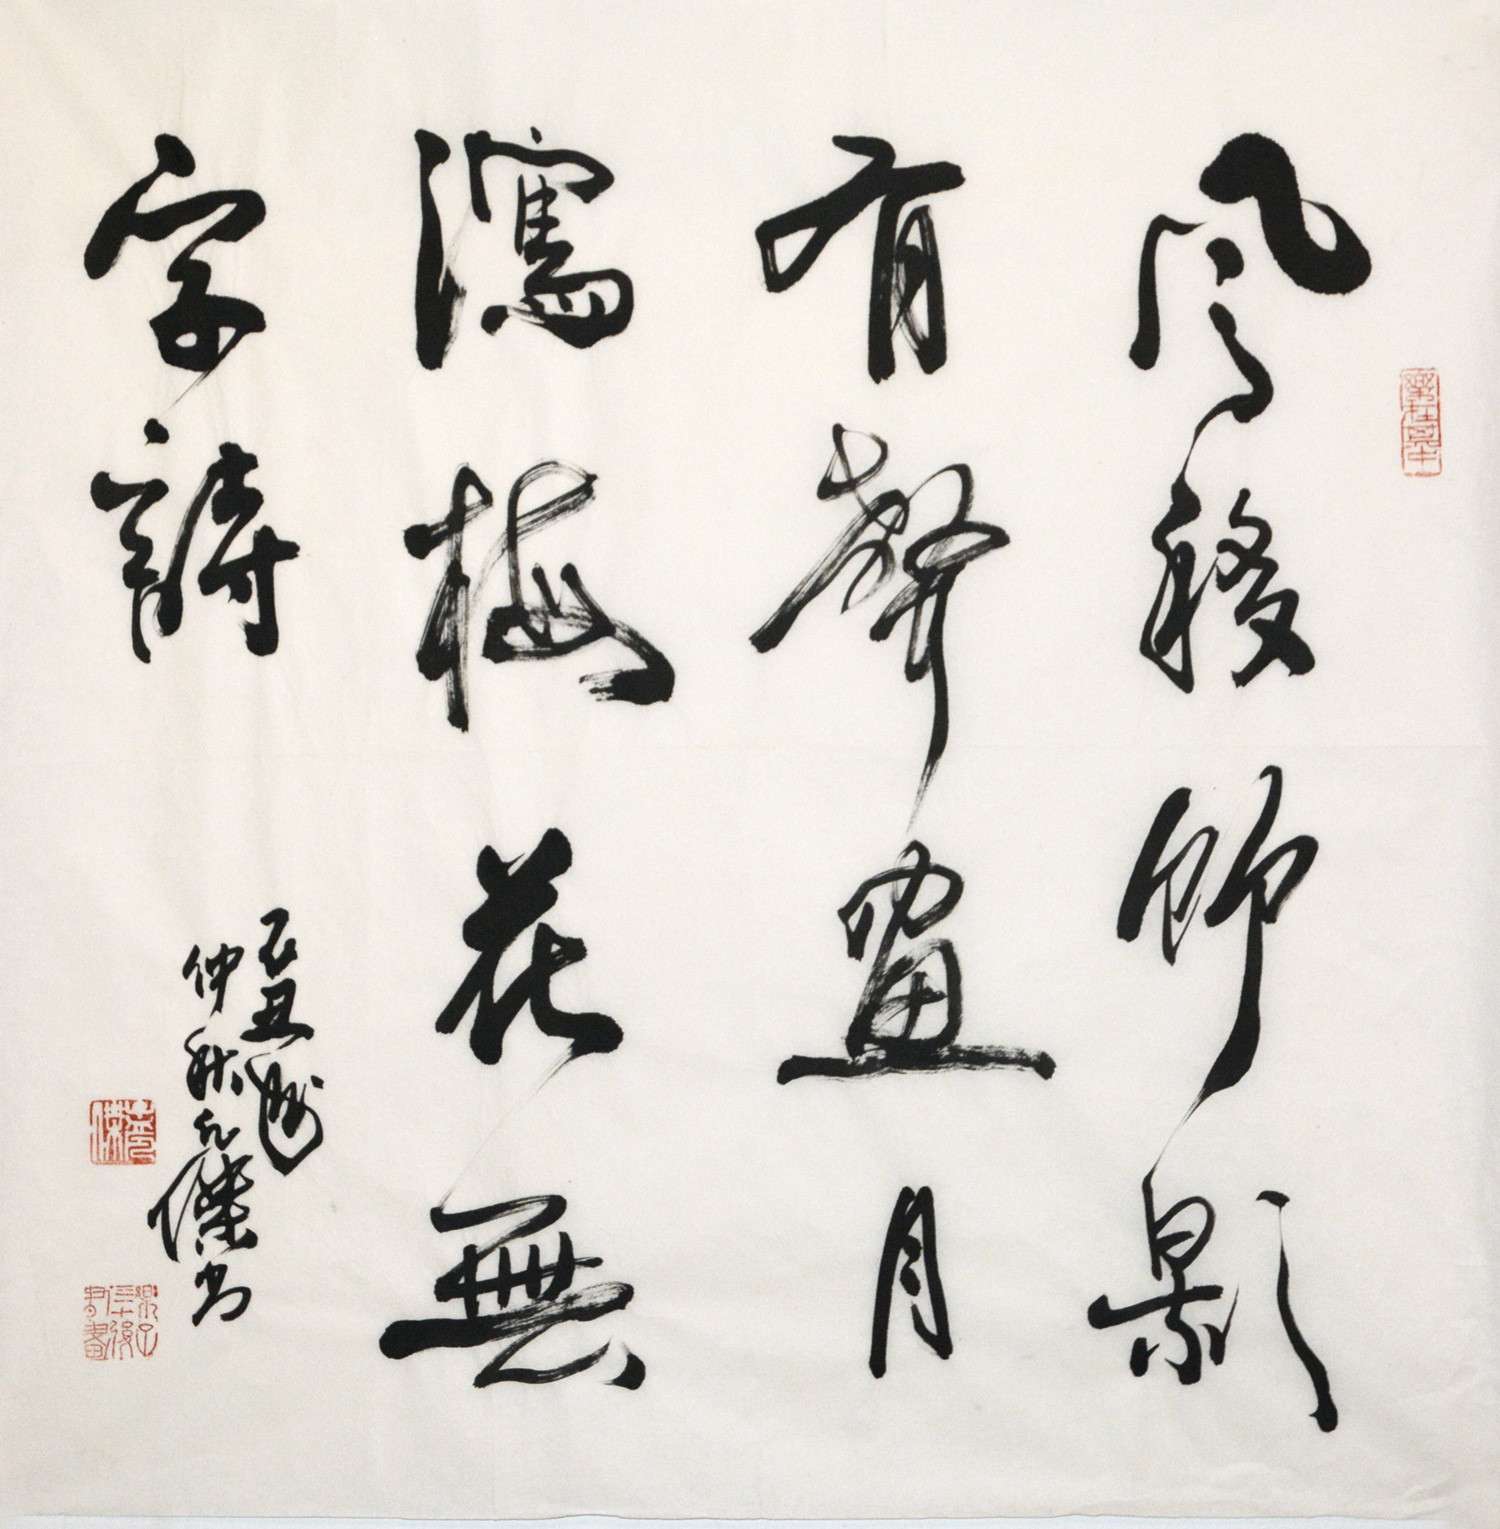 風移竹影
有聲畫月
瀉梅花無
字詩
己丑
仲秋元傑書